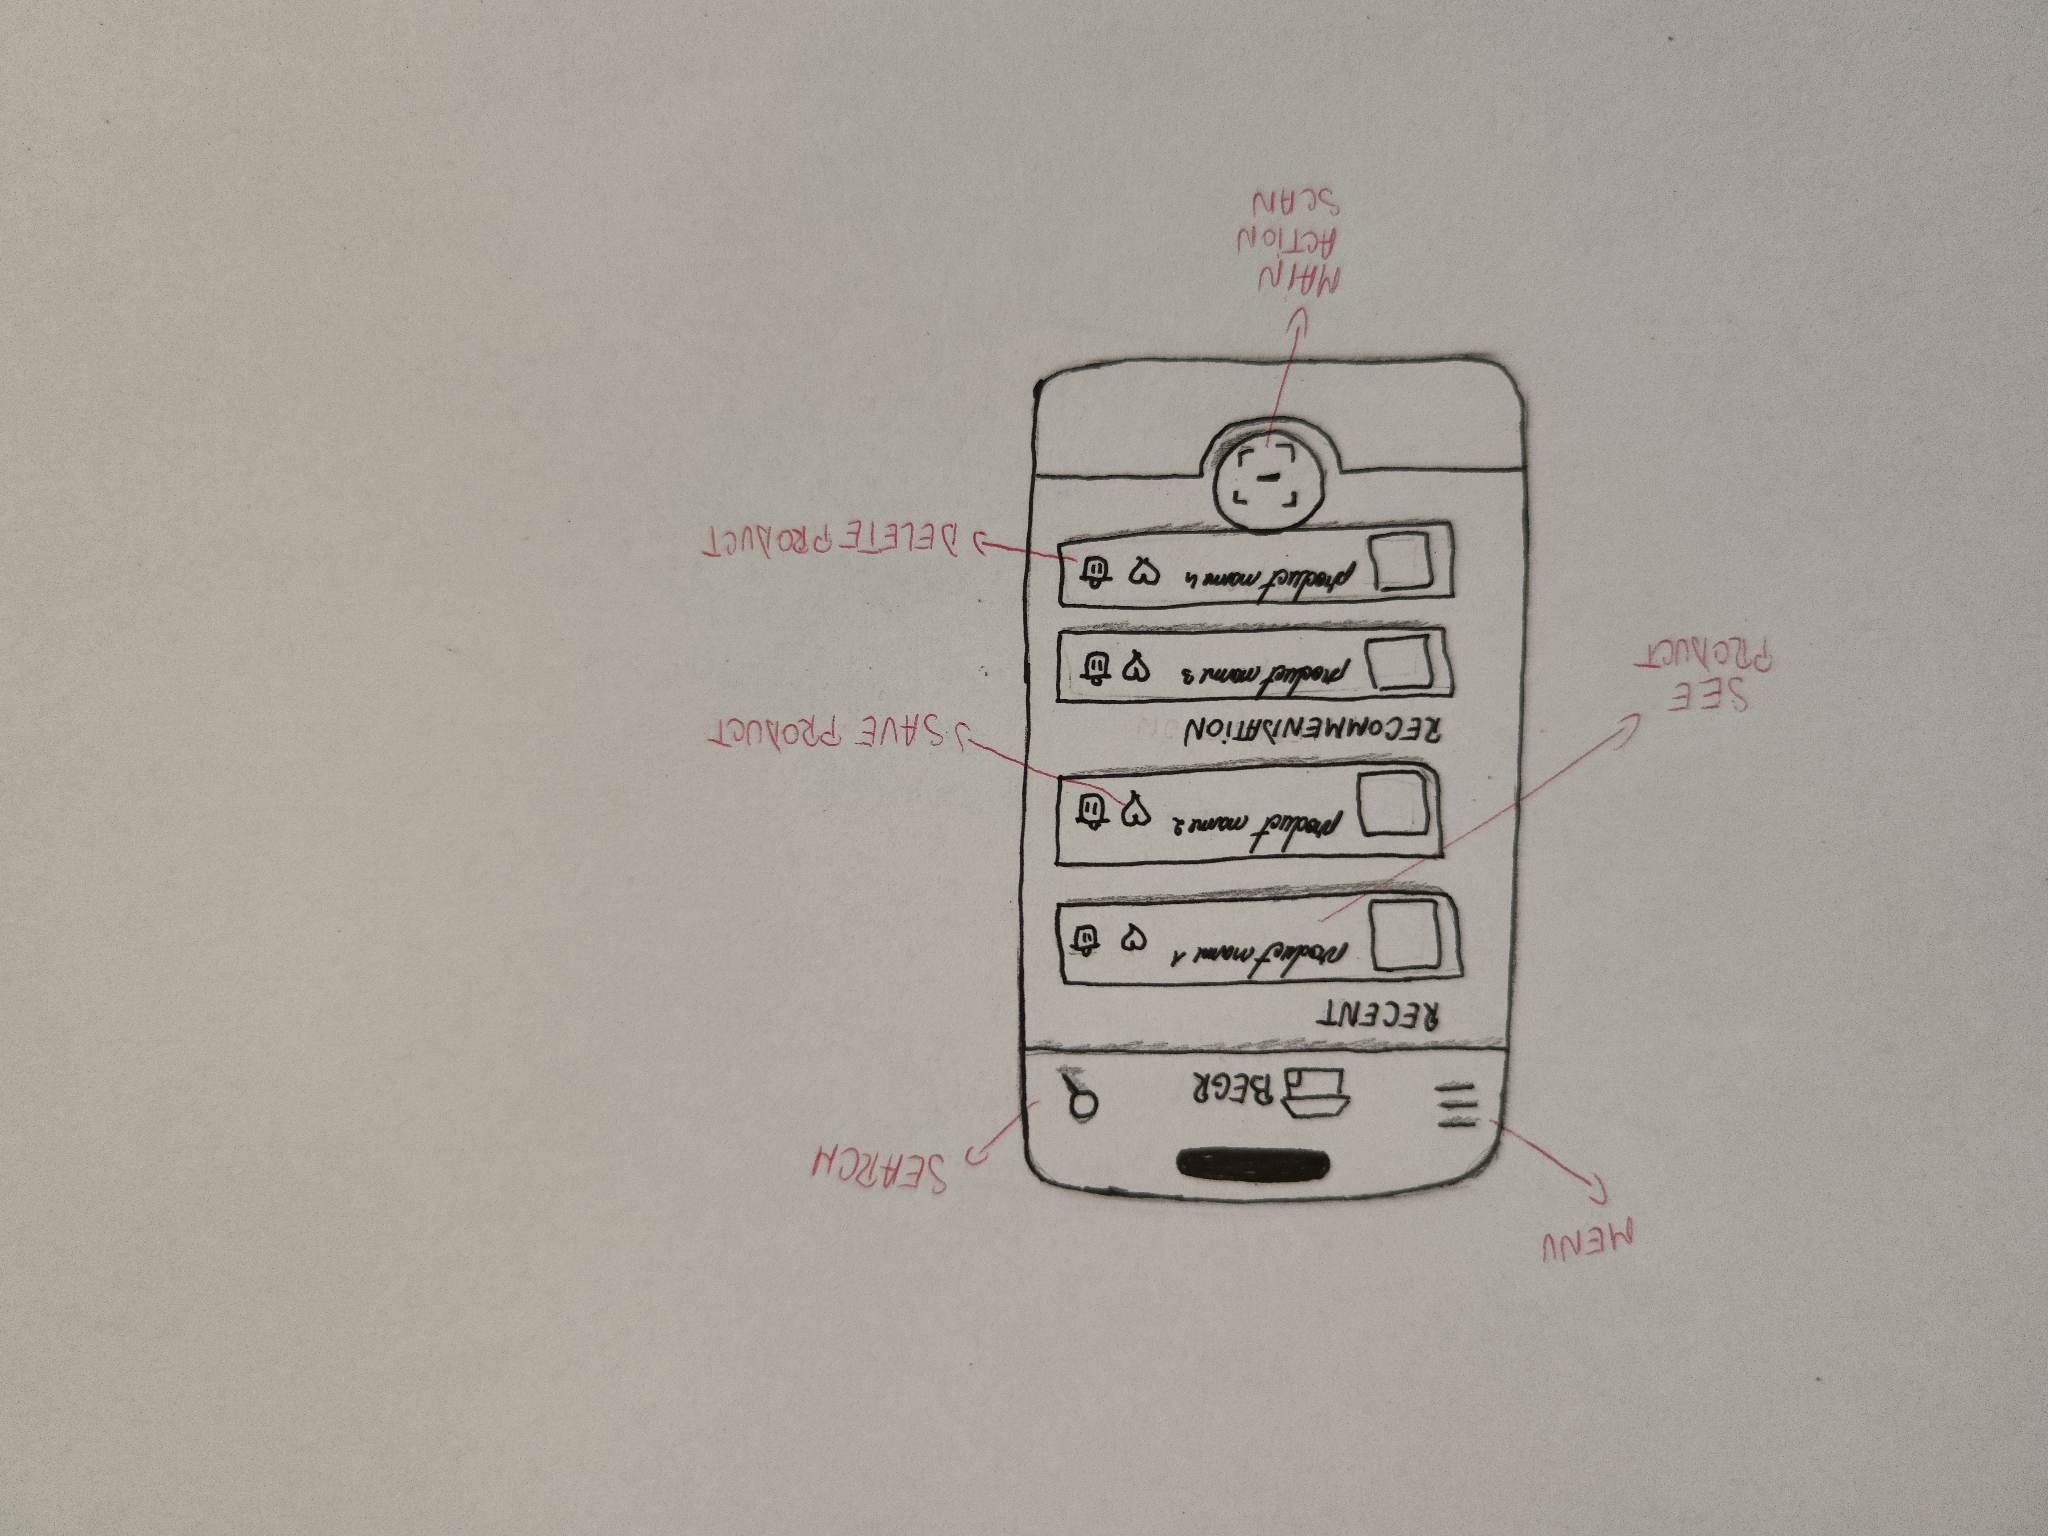 MENU
SEARCH
BEGR
RECENT
product name 1
product name 2
SAVE PRODUCT
RECOMMENDATION
SEE
PRODUCT
product name 3
product name 4
DELETE PRODUCT
MAIN
ACTION
SCAN